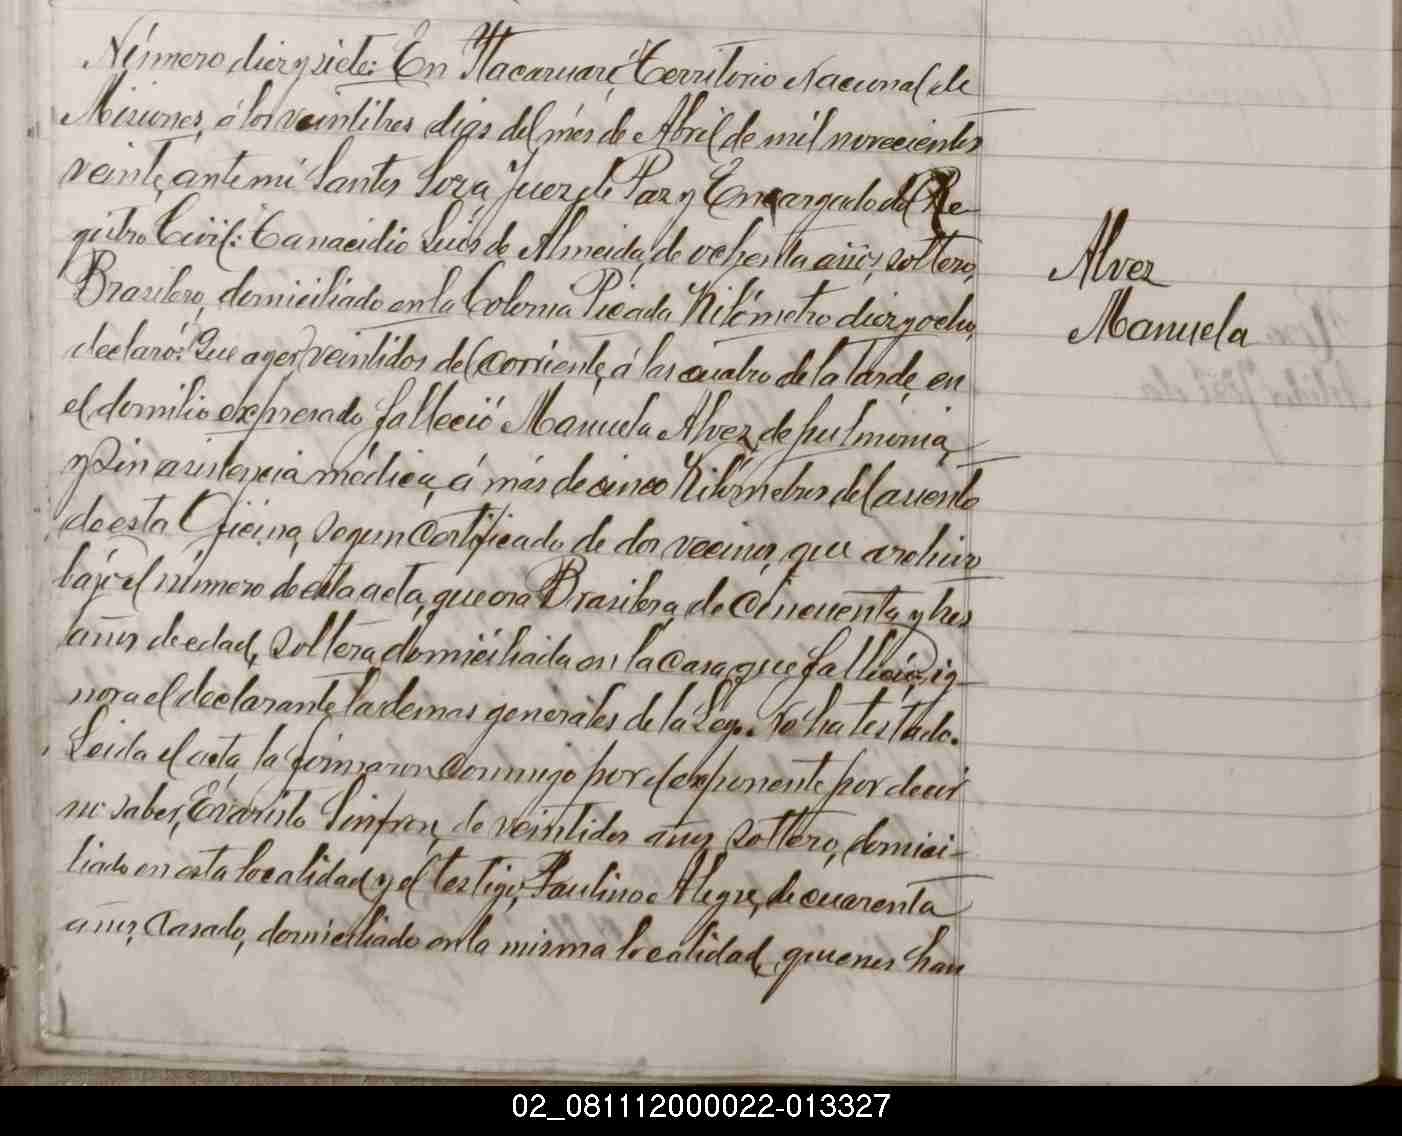 Número diez y siete: En Itacaruaré, Territorio Nacional de
Misiones, á los veintitres dias del mes de Abril de mil novecientos
veinte, ante mi Santos Soza, Juez de Paz y Encargado del Re-
gistro Civil: Luis de Almeida, de ochenta años, soltero,
Brasilero, domiciliado en la Colonia Picada Kilómetro diez y ocho,
declaró: Que ayer, veintidos del corriente, á las cuatro de la tarde, en
el domilio expresado falleció Manuela Alvez, de pulmonia,
y sin asistencia médica, á más de cinco Kilómetros del asiento
de esta Oficina, segun certificado de dos vecinos, que archivo
bajo el número de esta acta, que era Brasilera, de cincuenta y tres
años de edad, soltera, domiciliada en la casa que falleció, ig-
nora el declarante las demas generales de la Ley. No ha testado.
Leida el acta, la firmaron conmigo por el exponente por decir
no saber, Evaristo de veintidos años, soltero, domici-
liado en esta localidad y el testigo, Paulino Alegre, de cuarenta
años, casado, domiciliado en la misma localidad, quienes han
Alvez
Manuela
02_081112000022-013327